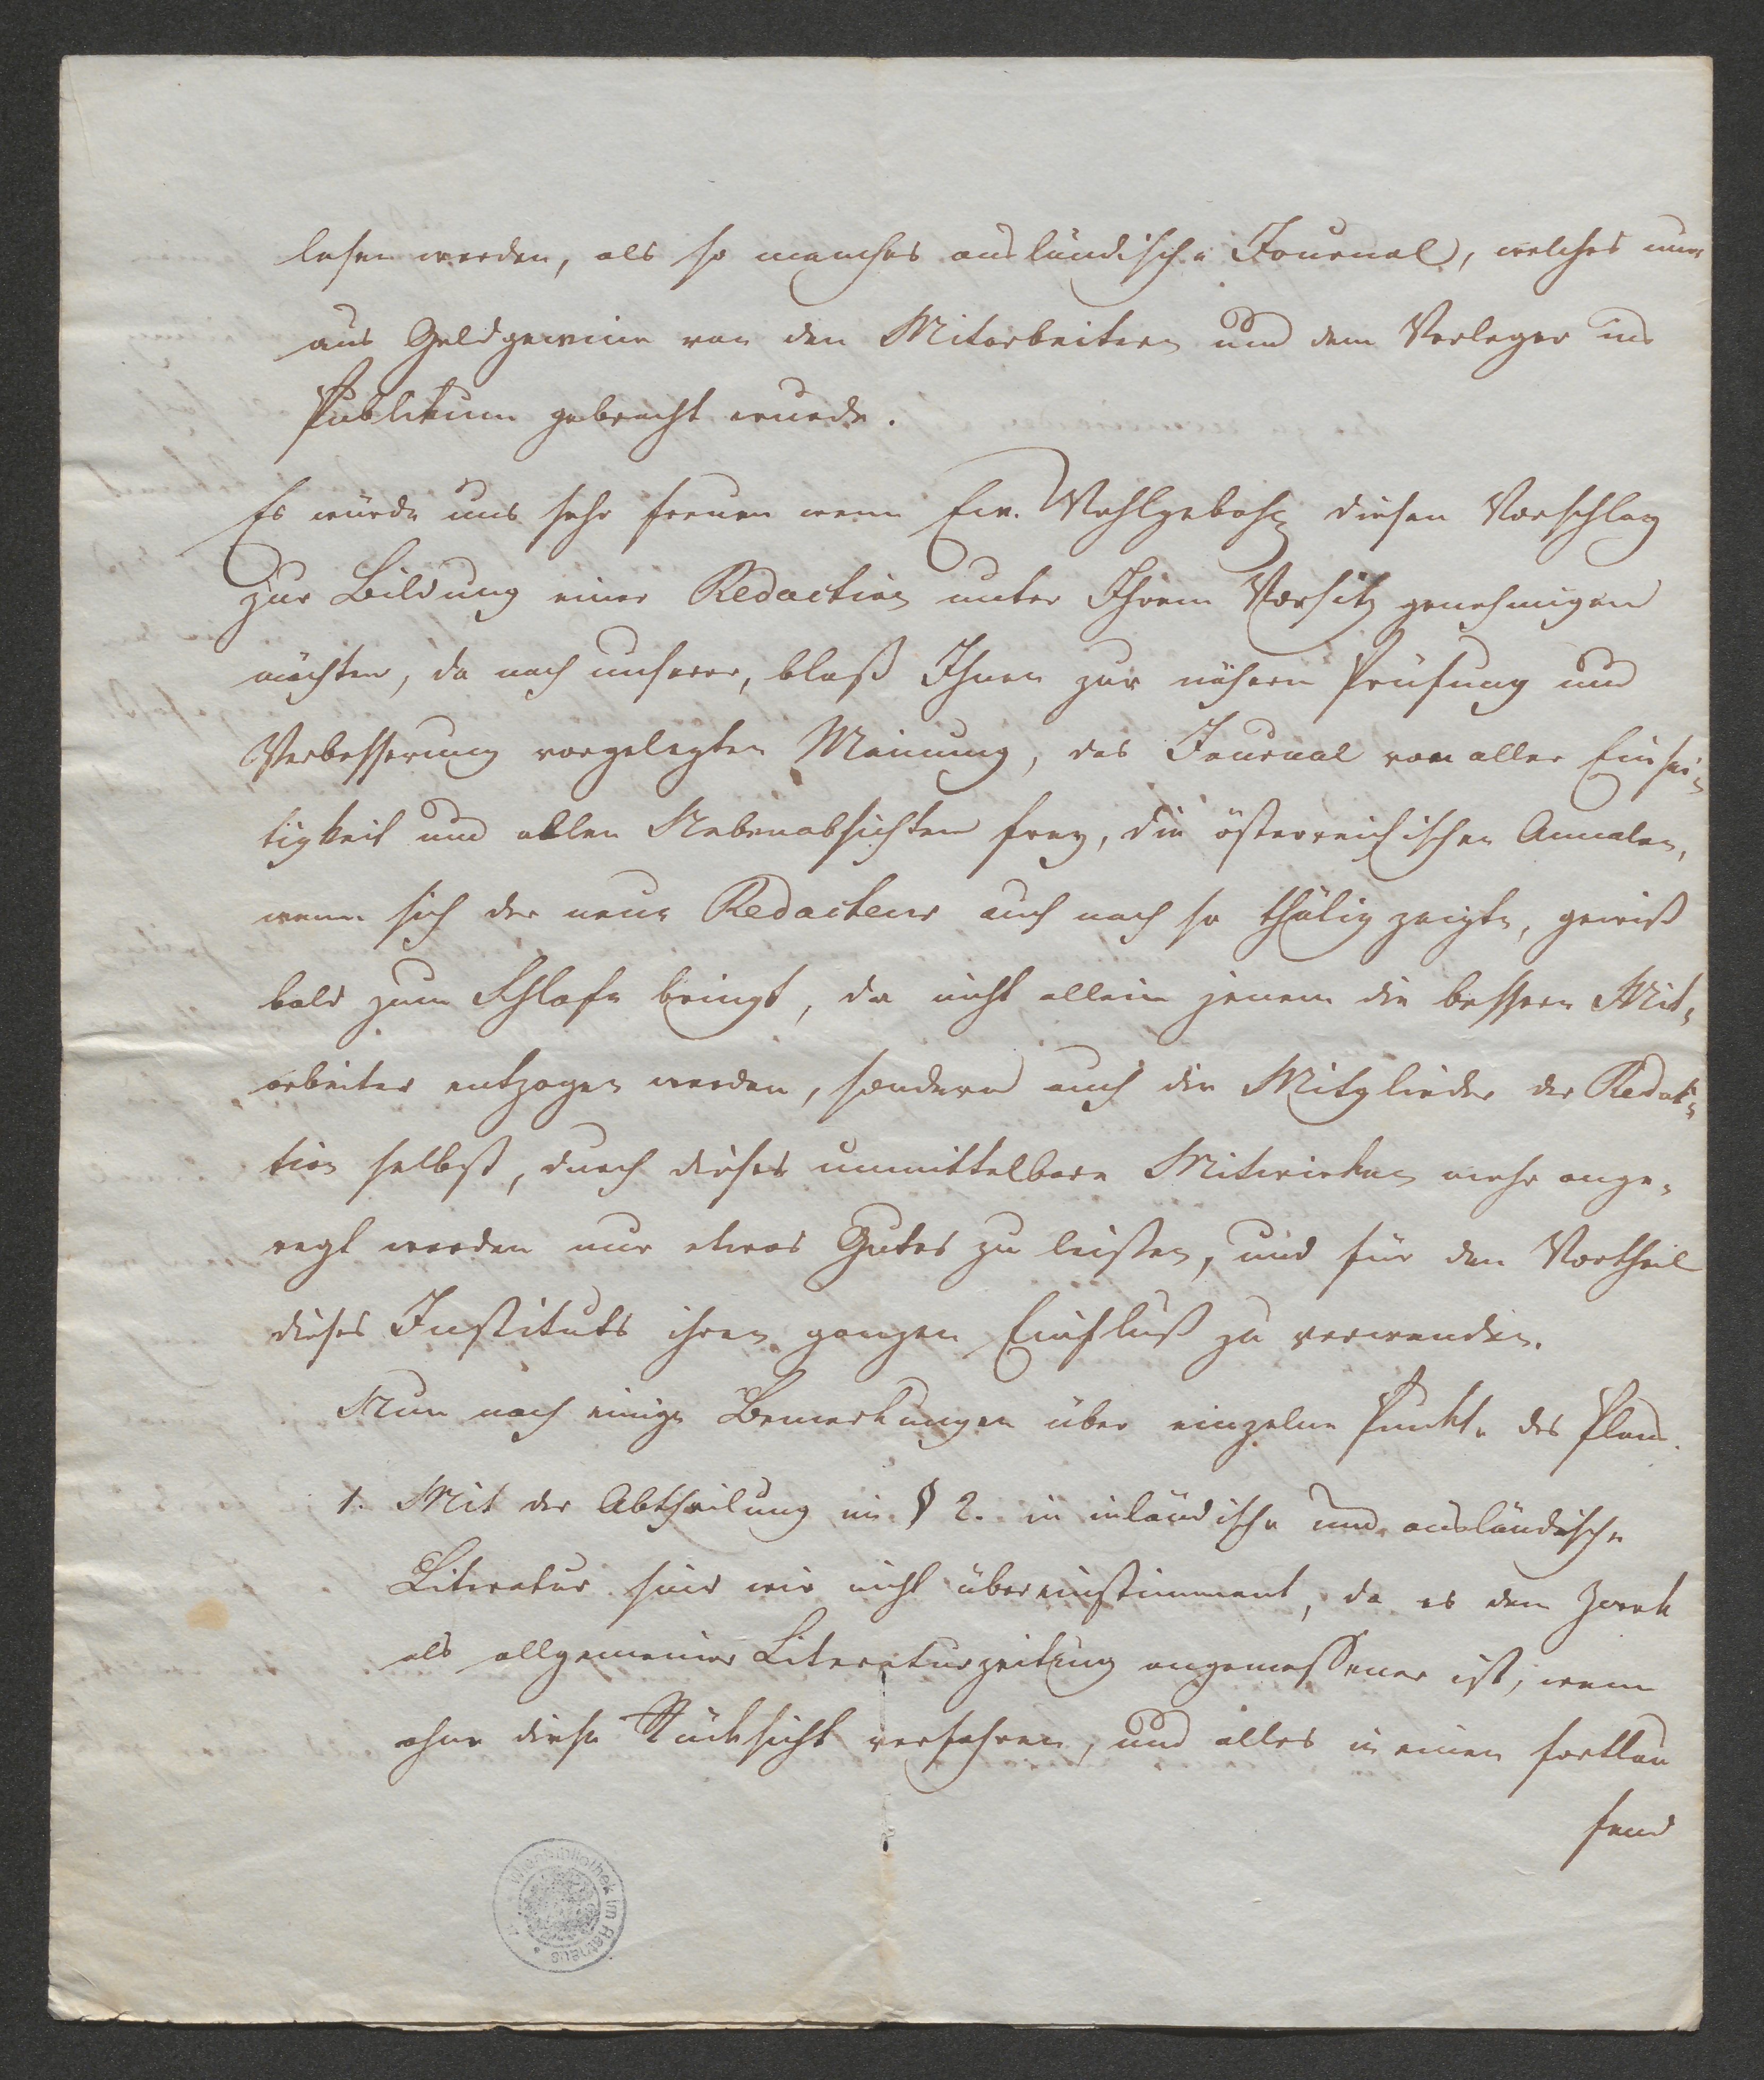 lesen werden, als so manches ausländische Journal, welches nur
aus Geldgewinn von den Mitarbeitern und dem Verleger ins
Publikum gebracht wurde.
Es würde uns sehr freuen wenn Ew. Wohlgebohrn diesen Vorschlag
zur Bildung einer Redaction unter Ihrem Vorsitz genehmigen
möchten, da nach unserer, bloß Ihnen zur nähern Prüfung und
Verbesserung vorgelegten Meinung, das Journal von aller Einsei-
tigkeit und allen Nebenabsichten frey, die österreichischen Annalen,
wenn sich der neue Redacteur auch noch so thätig zeigte, gewiß
bald zum Schlafe bringt, da nicht allein jenem die bessern Mit-
arbeiter entzogen werden, sondern auch die Mitglieder der Redak-
tion selbst, durch dieses unmittelbare Mitwirken mehr ange-
regt werden nur etwas Gutes zu leisten, und für den Vortheil
dieses Instituts ihren ganzen Einfluß zu verwenden.
Nun noch einige Bemerkungen über einzelne Punkte des Plans.
1. Mit der Abtheilung im § 2. in inländische und ausländische
Literatur sind wir nicht übereinstimment, da es dem Zwek
als allgemeiner Literaturzeitung angemessener ist, wenn
ohne diese Rücksicht verfahren, und alles in einen fortlau
fend
Wienbibliothek im Rathaus